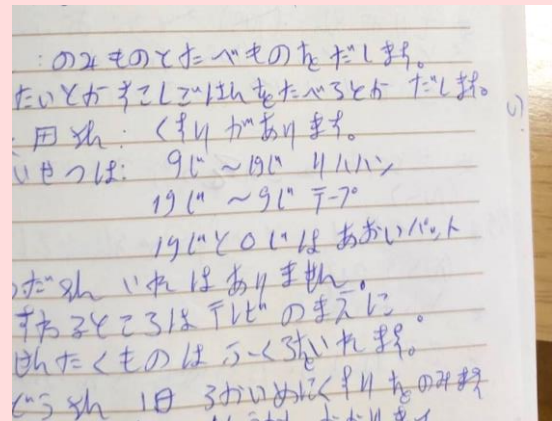 ：のみものとたべものをだします。
たいとかすこしごはんをたべるとか だします。
用さん：くすりがあります。
いせつは：9じ～19じ リハパン
19じ～9じ テープ
19じと0じは あおいパット
だ さん いれはありません。
すわるところは テレビ のまえに。
せんたくものは ふくろをいれます。
どうさん 1日 3かいめにくすりをのみます